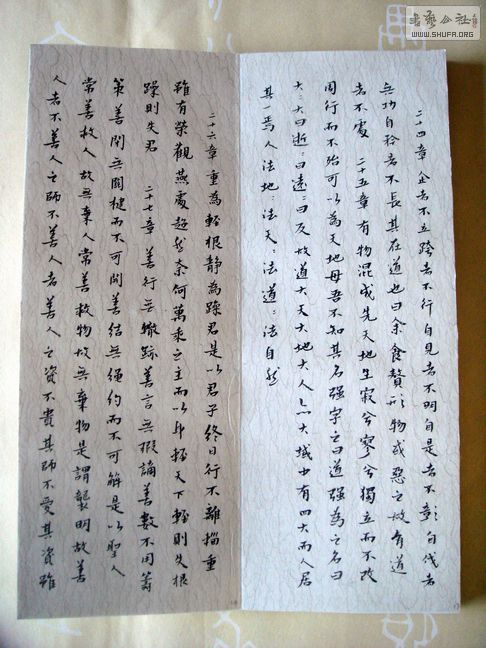 二十四章 企者不立跨者不行自見者不明自是者不彰自伐者
无功自矜者不長其在道也曰余食贅形物或惡之故有道
者不處 二十五章 有物混成先天地生寂兮寥兮獨立而不改
周行而不殆可以為天地母吾不知其名强字之曰道强為之名曰
大大曰逝:曰遠:曰反故道大天大地大人亦大域中有四大而人居
其一焉人法地:法天:法道:法自然
二十六章 重為輕根静為躁君是以君子終日行不離輜重
雖有榮觀燕處超然奈何萬乘之主而以身輕天下輕則失根
躁則失君 二十七章 善行无轍跡善言無瑕謫善數不用籌
策善閉無關楗而不可開善結無繩約而不可解是以聖人
常善救人故無棄人常善救物故無棄物是謂襲明故善
人者不善人之師不善人者善人之資不貴其師不愛其資雖
書藝公社
WWW.SHUFA.ORG